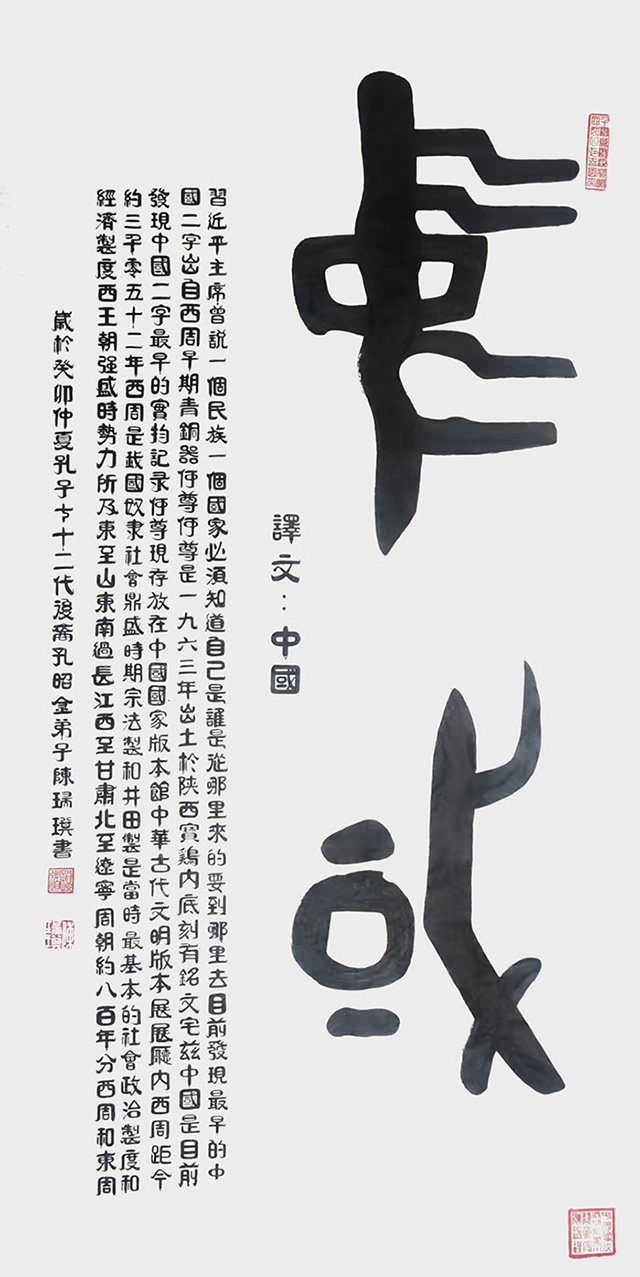 中或
譯文：中國
習近平主席曾説一個民族一個國家必須知道自己是誰是從哪里來的要到哪里去目前發現最早的中
國二字出自西周早期青銅器何尊何尊是一九六三年出土於陝西寶鷄内底刻有銘文宅兹中國是目前
發現中國二字最早的實物記录何尊現存放在中國國家版本館中華古代文明版本展展廳内西周距今
約三千零五十二年西周是我國奴隶社會鼎盛時期宗法製和井田製是當時最基本的社會政治製度和
經濟製度西王朝强盛時勢力所及東至山東南過長江西至甘肅北至遼寧周朝約八百年分西周和東周
歲於癸卯仲夏孔子七十二代後裔孔昭金弟子陳瑞璵書